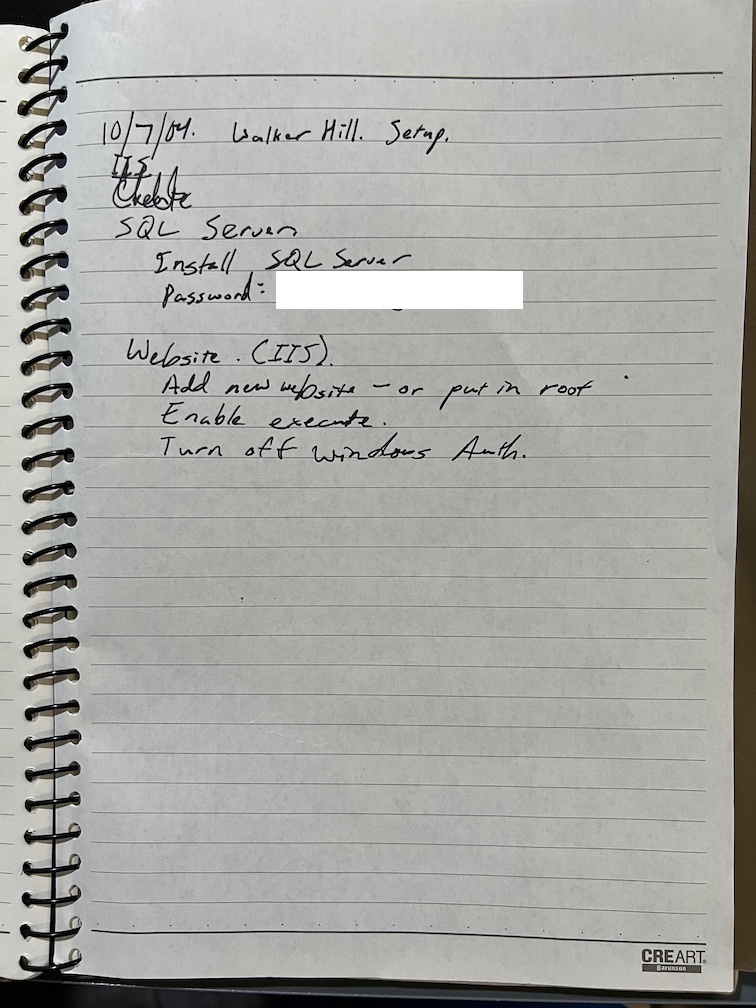 10/7/04. Walker Hill. Setup.
IIS
SQL Server
Install SQL Server
Password:
Website. (IIS).
Add new website - or put in root
Enable execute.
Turn off windows Auth.
CREART
Baronson